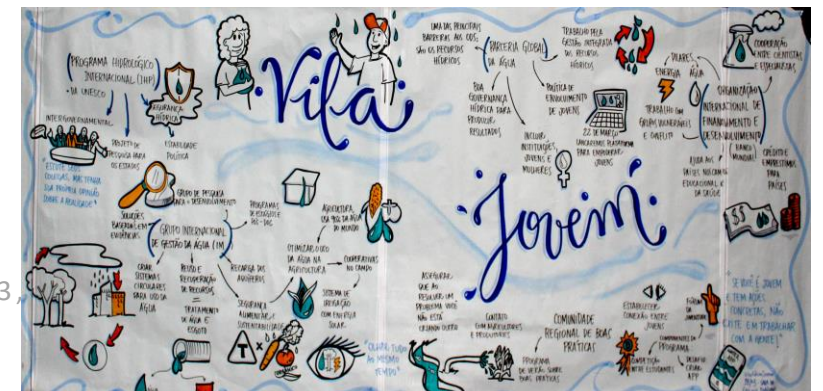 Vila
Jovem
(PROGRAMA HIDROLÓGICO
INTERNACIONAL (IHP)
DA UNESCO
SEGURANÇA
HÍDRICA
INTERGOVERNAMENTAL
PROJETO DE
PESQUISA PARA
OS ESTADOS
ESTABILIDADE
POLÍTICA
SUA PRÓPRIA OPINIÃO
SOBRE A REALIDADE"
GRUPO DE PESQUISA
SOLUÇÕES
BASEADAS EM
EVIDÊNCIAS
GRUPO INTERNACIONAL
DE GESTÃO DA ÁGUA
CRIAR
SISTEMAS
CIRCULARES
PARA USO DA
ÁGUA
REUSO E
RECUPERAÇÃO
DE RECURSOS
=
TRATAMENTO
DE ÁGUA E
ESGOTO
RECARGA DOS
AQUÍFEROS
SEGURANÇA
ALIMENTAR E
SUSTENTABILIDADE
PROGRAMAS
DE ESTÁGIO E
AGRICULTURA
DA ÁGUA
DO MUNDO
OTIMIZAR O USO
DA ÁGUA NA
AGRICULTURA
COOPERATIVAS
NO CAMPO
SISTEMA DE
IRRIGAÇÃO
COM ENERGIA
SOLAR
"OLHAR TUDO
AO MESMO
TEMPO"
UMA DAS PRINCIPAIS
BARREIRAS AOS ODS,
SÃO OS RECURSOS
HÍDRICOS
(PARCERIA GLOBAL
DA ÁGUA)
TRABALHO PELA
GESTÃO INTEGRADA
DOS RECURSOS
HÍDRICOS
BOA
GOVERNANÇA
HÍDRICA PARA
PRODUZIR
RESULTADOS
POLÍTICA DE
ENVOLVIMENTO
DE JOVENS
INCLUIR
INSTITUIÇÕES,
JOVENS E
MULHERES
22 DE MARÇO
LANÇAREMOS PLATAFORMA
PARA EMPODERAR
JOVENS
PILARES
ENERGIA
ÁGUA
TRABALHO EM
GRUPOS VULNERÁVEIS
E CONFLITO
COOPERAÇÃO
ENTE CIENTISTAS
E ESPECIALISTAS
ORGANIZAÇÃO
INTERNACIONAL DE
FINANCIAMENTO E
DESENVOLVIMENTO
BANCO
MUNDIAL
AJUDA AOS
PAÍSES NOS CAMPOS
EDUCACIONAL E
DA SAÚDE
CRÉDITO E
EMPRÉSTIMOS
PARA
PAÍSES
$$
ASSEGURAR
QUE AO
RESOLVER UM
PROBLEMA VOCÊ
NÃO ESTÁ
CRIANDO OUTRO
CONTATO
COM AGRICULTORES
E PESQUISADORES
PROGRAMA
DE VERÃO SOBRE
BOAS PRÁTICAS
COMUNIDADE
REGIONAL DE BOAS
PRÁTICAS
ESTABELECER
CONEXÃO ENTRE
JOVENS
PROGRAMA
COMPETIÇÃO
ENTRE ESTUDANTES
DESAFIO
CRIAR
APP
"SE VOCÊ É JOVEM
E TEM AÇÕES
CONCRETAS, NÃO
HESITE EM TRABALHAR
COM A GENTE!"
3,